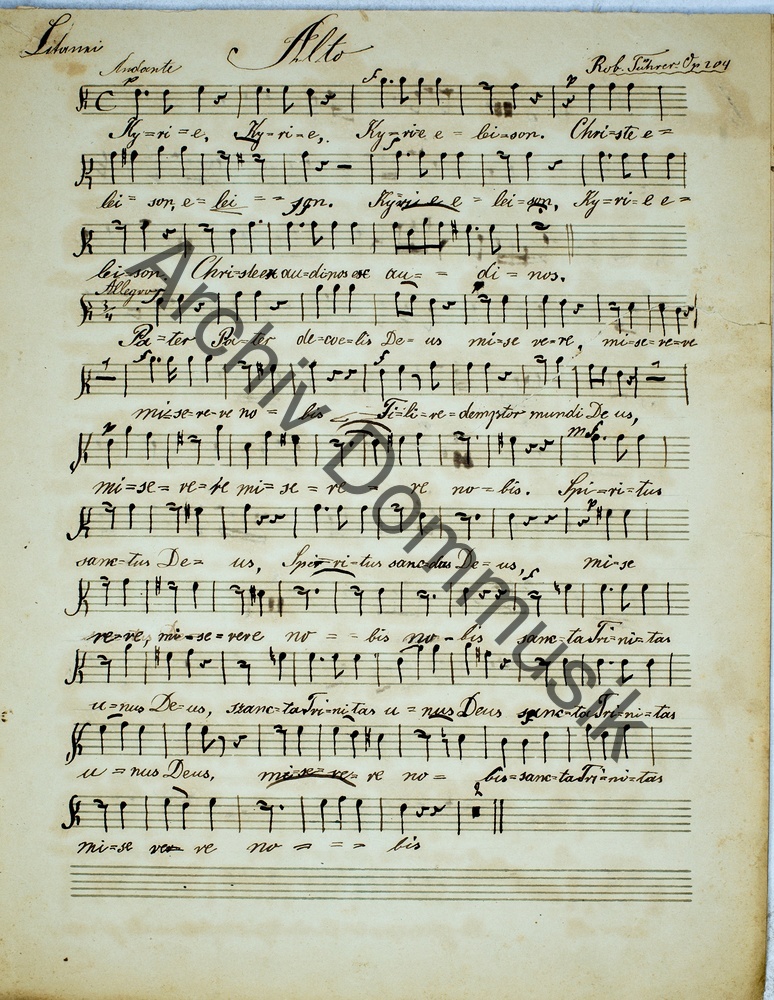 Litanei Alto
Andante Rob. Führer Op. 204
p f p
Ky=ri=e, Ky=ri=e, Ky=rie e=lei=son. Chri=ste e=
lei= son, e=lei == son. Ky=rie e=lei=son, Ky=ri=e e=
lei=son. Chri=ste au=dinos au= = di=nos.
Allegro
3/4
Pa=ter Pa=ter de=coe=lis De=us mi=se re=re, mi=se=re=re
mi=se=re=re no= bis Fi=li=re=demptor mundi De us,
p mf
mi=se=re=re mi=se=re= re no=bis. Spi=ri=tus
p
sanc=tus De= us, Spi=ri=tus sanc=tus De=us, mi=se
f
re=re, mi=se=rere no= = bis no=bis sanc=ta Tri=ni=tas
u=nus De=us, sanc=ta Tri=ni tas u=nus Deus sanc=ta Tri=ni=tas
u=nus Deus, mi=se=re= re no= bis=sanc=ta Tri=ni=tas
2
mi=se re= re no = = = bis
Archiv Dommusik